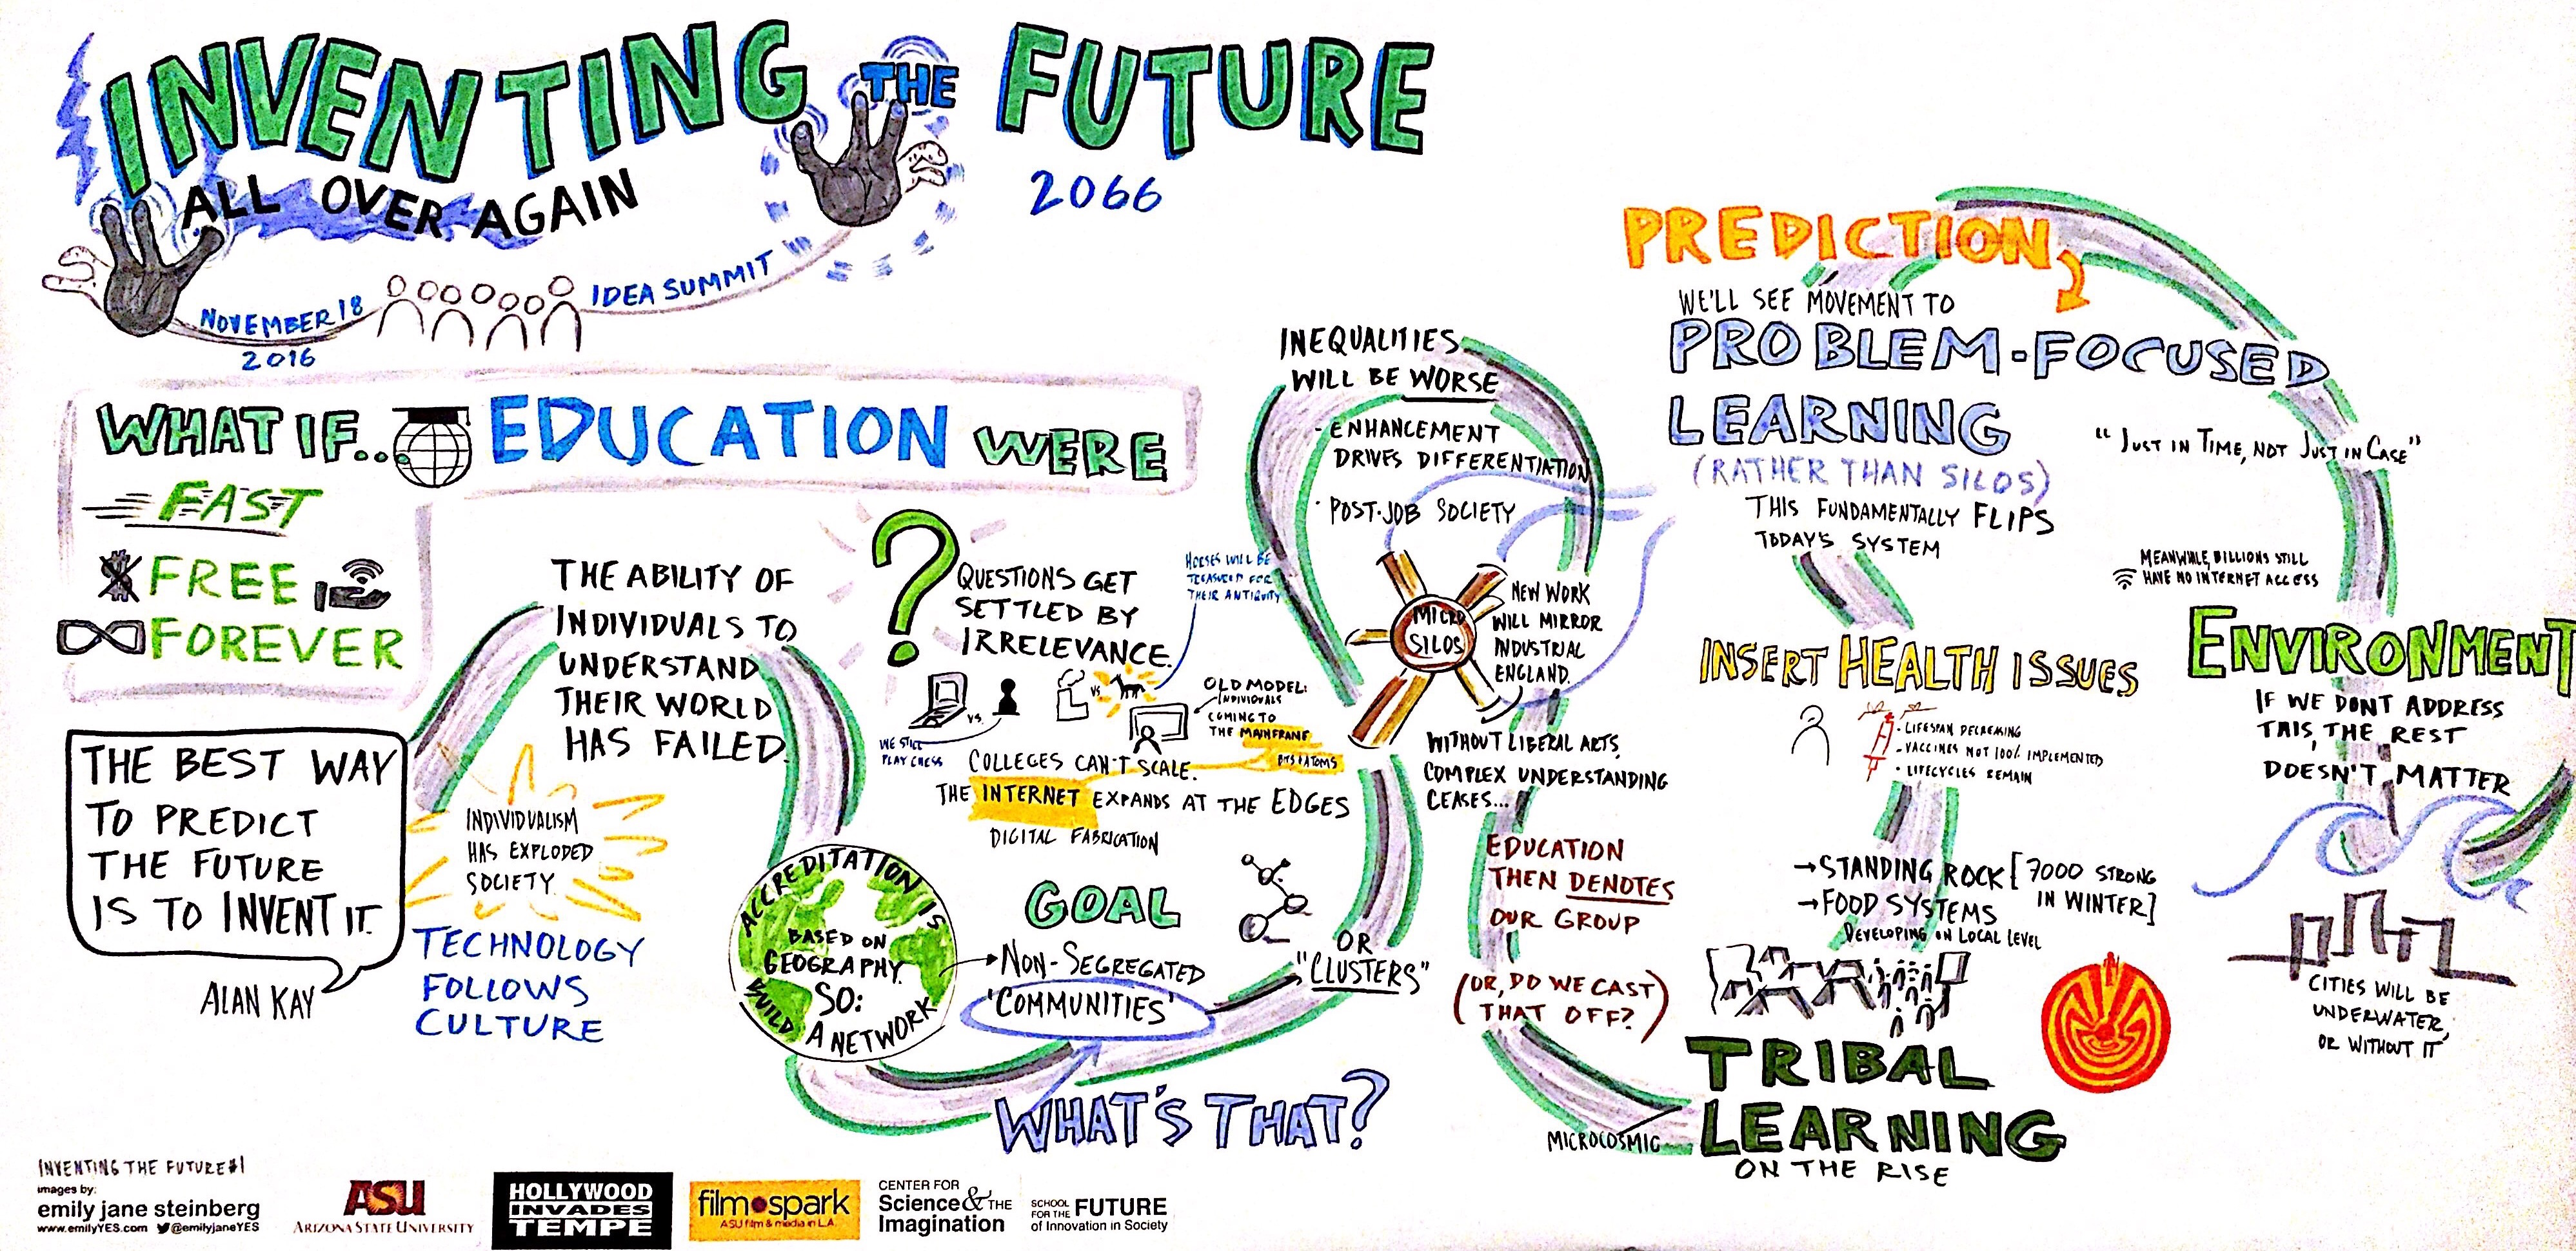 INVENTING THE FUTURE
ALL OVER AGAIN
2066
NOVEMBER 18
2016
IDEA SUMMIT
WHAT IF... EDUCATION WERE
FAST
FREE
FOREVER
THE BEST WAY
TO PREDICT
THE FUTURE
IS TO INVENT IT.
ALAN KAY
THE ABILITY OF
INDIVIDUALS TO
UNDERSTAND
THEIR WORLD
HAS FAILED.
INDIVIDUALISM
HAS EXPLODED
SOCIETY.
TECHNOLOGY
FOLLOWS
CULTURE
?
QUESTIONS GET
SETTLED BY
IRRELEVANCE.
HORSES WILL BE
TREASURED FOR
THEIR ANTIQUITY
VS.
VS
WE STILL
PLAY CHESS
OLD MODEL:
INDIVIDUALS
COMING TO
THE MAINFRAME
BITS & ATOMS
COLLEGES CAN'T SCALE.
THE INTERNET EXPANDS AT THE EDGES
DIGITAL FABRICATION
ACCREDITATION IS
BASED ON
GEOGRAPHY.
SO:
BUILD
A NETWORK
GOAL
NON-SEGREGATED
'COMMUNITIES'
OR
"CLUSTERS"
WHAT'S THAT?
INEQUALITIES
WILL BE WORSE
- ENHANCEMENT
DRIVES DIFFERENTIATION
· POST-JOB SOCIETY
MICRO
SILOS
NEW WORK
WILL MIRROR
INDUSTRIAL
ENGLAND.
WITHOUT LIBERAL ARTS,
COMPLEX UNDERSTANDING
CEASES...
EDUCATION
THEN DENOTES
OUR GROUP
(OR, DO WE CAST
THAT OFF?)
PREDICTION
WE'LL SEE MOVEMENT TO
PROBLEM-FOCUSED
LEARNING
(RATHER THAN SILOS)
THIS FUNDAMENTALLY FLIPS
TODAY'S SYSTEM
"JUST IN TIME, NOT JUST IN CASE"
MEANWHILE, BILLIONS STILL
HAVE NO INTERNET ACCESS
INSERT HEALTH ISSUES
- LIFESPAN DECREASING
- VACCINES NOT 100% IMPLEMENTED
· LIFECYCLES REMAIN
→ STANDING ROCK [7000 STRONG
IN WINTER]
→ FOOD SYSTEMS
DEVELOPING ON LOCAL LEVEL
TRIBAL
LEARNING
ON THE RISE
MICROCOSMIC
ENVIRONMENT
IF WE DON'T ADDRESS
THIS, THE REST
DOESN'T MATTER
CITIES WILL BE
UNDERWATER,
OR WITHOUT IT
INVENTING THE FUTURE #1
images by:
emily jane steinberg
www.emilyYES.com @emilyjaneYES
ASU
ARIZONA STATE UNIVERSITY
HOLLYWOOD
INVADES
TEMPE
film spark
ASU film & media in L.A.
CENTER FOR
Science & THE
Imagination
SCHOOL
FOR THE FUTURE
of Innovation in Society